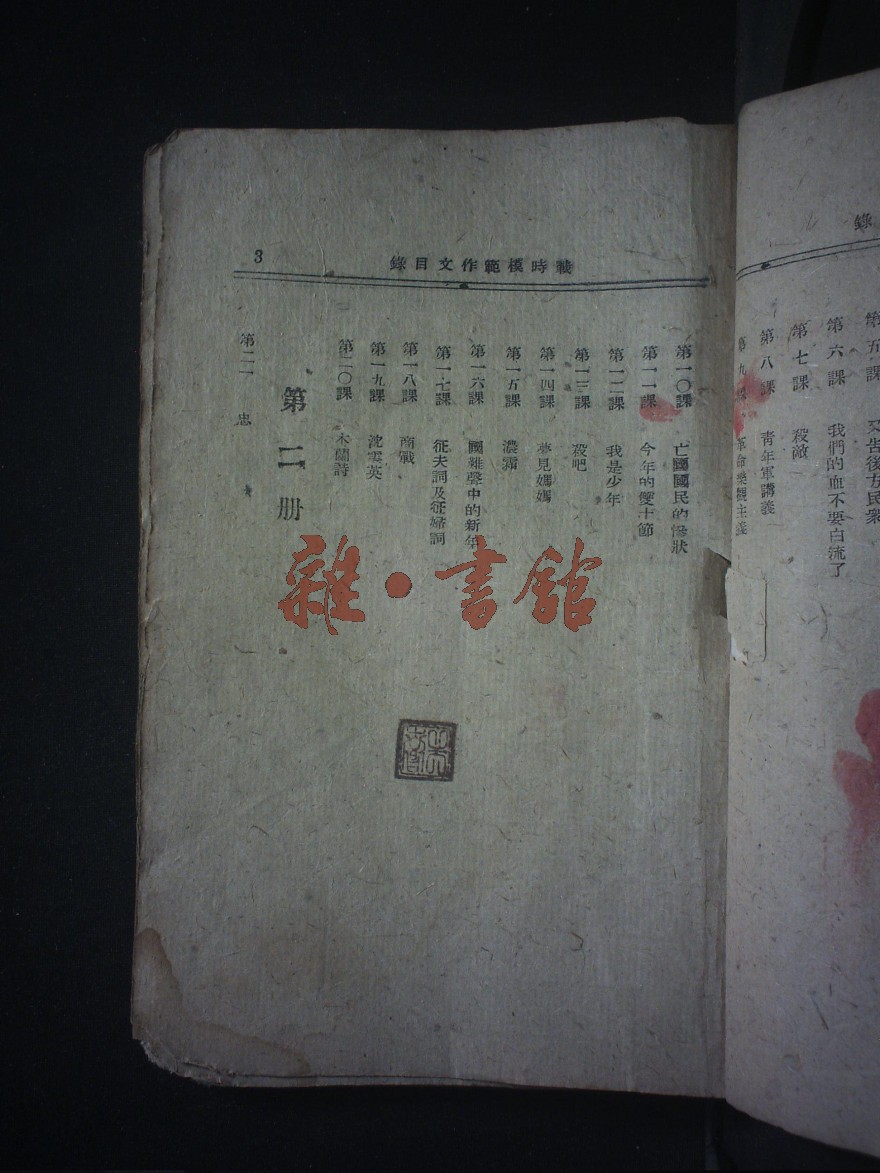 錄
第五課 又告後方民衆
第六課 我們的血不要白流了
第七課 殺敵
第八課 青年軍講義
第九課 革命樂觀主義
戰時模範作文目錄
3
第一〇課 亡國國民的慘狀
第一一課 今年的雙十節
第一二課 我是少年
第一三課 殺吧
第一四課 夢見媽媽
第一五課 濃霜
第一六課 國難聲中的新年
第一七課 征夫詞及征婦詞
第一八課 商戰
第一九課 沈雲英
第二〇課 木蘭詩
第二册
第二一 忠
雜·書館